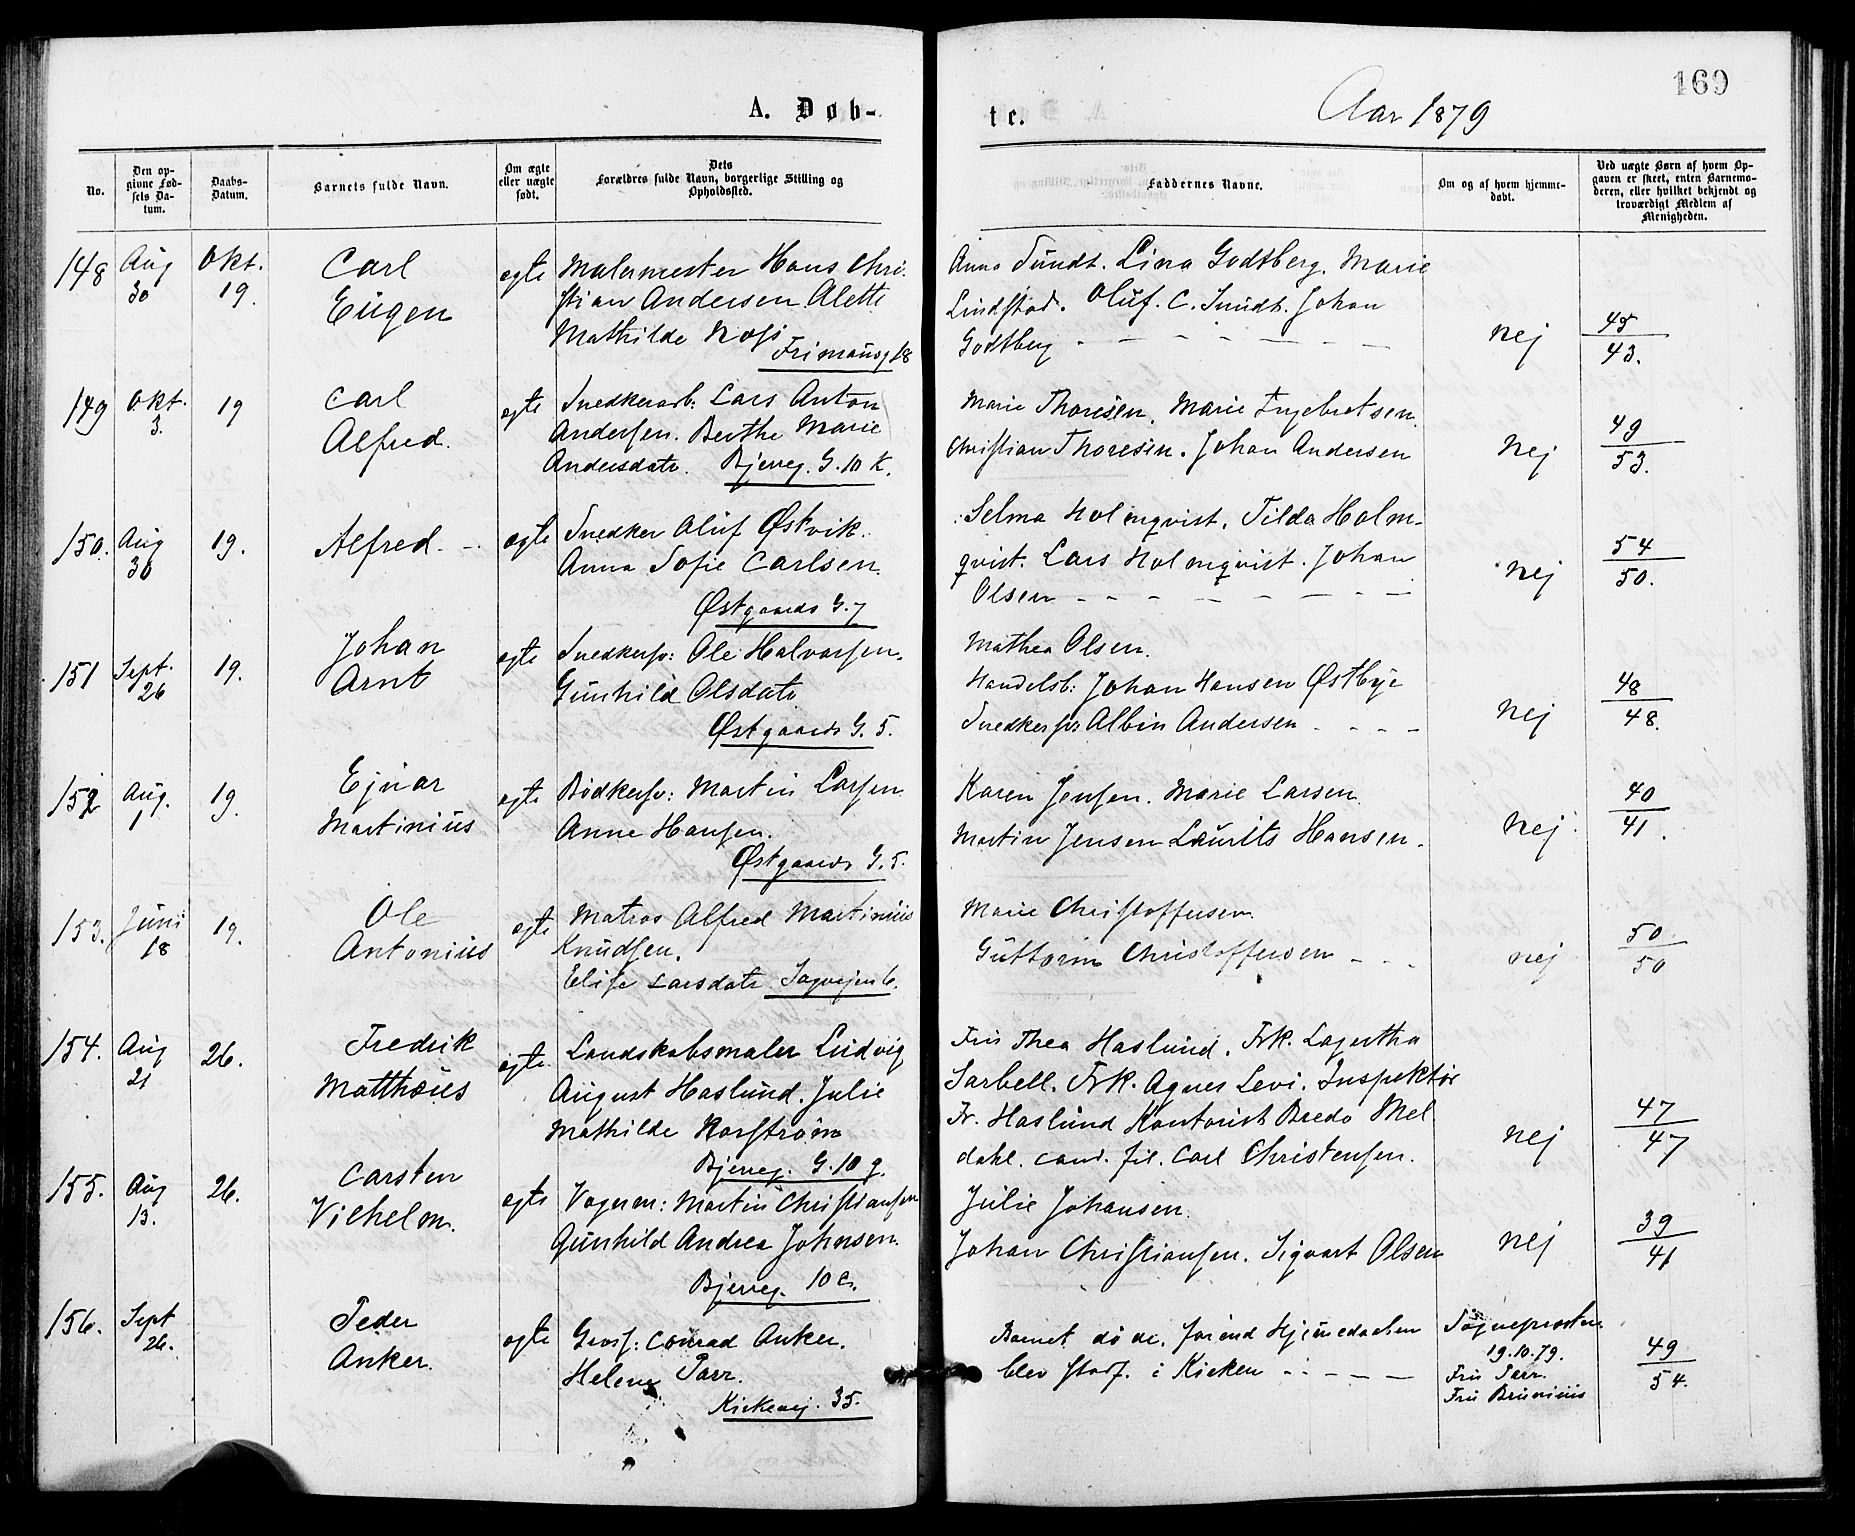 169
A. Døb-
te.
Aar 1879
No.
Den op-
givne Fød-
sels Da-
tum.
Daabs-
Datum.
Barnets fulde Navn.
Om ægte
eller uægte
født.
Dets
Forældres fulde Navn, borgerlige Stilling og
Opholdssted.
Faddernes Navne.
Om og af hvem hjemme-
døbt.
Ved uægte Børn af hvem Op-
gaven er skeet, enten Barnemo-
deren, eller hvilket bekjendt og
troværdigt Medlem af
Menigheden.
148 Aug 30 Okt. 19.
Carl
Eugen
egte
Malermester Hans Chri-
stian Andersen Alette
Mathilde
Frimansg 18
Anna Sundt. Lina Godtberg. Marie
Lindstad. Oluf. C. Sundt. Johan
Godtberg - - - - -
nej
45
43.
149 Okt. 3. 19
Carl
Alfred.
egte
Snedkerarb: Lars Anton
Andersen. Berthe Marie
Andersdatr. Bjerreg. G. 10 K.
Marie Thoresen. Marie Ingebretsen.
Christian Thoresen. Johan Andersen
Nej
49
53.
150. Aug 30 19.
Alfred. -
egte
Snedker Oluf Østvik.
Anna Sofie Carlsen.
Østgaards G. 7
Selma Holmqvist. Tilda Holm-
qvist. Lars Holmqvist. Johan
Olsen - - - - - -
nej
54
50.
151 Sept. 26 19.
Johan
Arnt
egte
Snedkersv: Ole Halvorsen.
Gunhild Olsdatr.
Østgaards G. 5.
Mathea Olsen.
Handelsb: Johan Hansen Østbye
Snedkersv Albin Andersen - - - -
nej
48
48.
152 Aug. 1 19.
Ejnar
Martinius
egte
Bødkersv: Martin Larsen
Anne Hansen.
Østgaards G. 5.
Karen Jensen. Marie Larsen.
Martin Jensen Laurits Hansen.
nej.
40
41.
153. Juni 18 19.
Ole
Antonius
egte
Matros Alfred Martinius
Knudsen.
Elise Larsdatr Sagvejen 6.
Marie Christoffersen.
Guttorm Christoffersen - - -
nej
50
50
154. Aug 21 26.
Fredrik
Matthæus
egte
Landskabsmaler Ludvig
August Haslund. Julie
Mathilde Norstrøm
Bjerreg. G. 10 g.
Fru Thea Haslund. Frk. Lagertha
Sarbell. Frk. Agnes Levi. Inspektør
Fr. Haslund Kontorist Bredo Mel
dahl. cand. fil. Carl Christensen.
nej
47
47
155. Aug 13. 26.
Carsten
Vilhelm.
egte
Vognm: Martin Christiansen
Gunhild Andrea Johnsen.
Bjerreg. 10 c.
Julie Johansen.
Johan Christiansen. Sigvart Olsen
nej
39
41
156. Sept 26.
Peder
Anker.
egte
Gross: Conrad Anker.
Helene Parr.
Kirkevej. 35.
Barnet døde. førend Hjemedaaben
blev stadf. i Kirken - - - -
Sognepresten
19.10.79.
Fru Parr.
Fru Brunius
49
54.